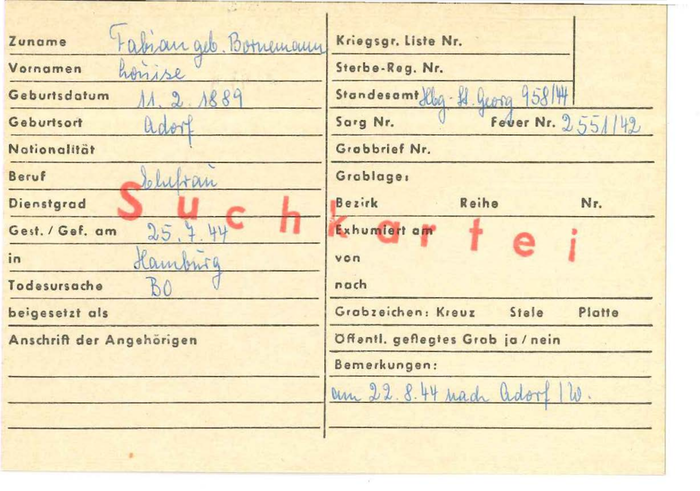 Zuname Fabian geb. Bornemann
Vornamen Louise
Geburtsdatum 11.2.1889
Geburtsort Adorf
Nationalität
Beruf Ehefrau
Dienstgrad
Gest./Gef. am 25.7.44
in Hamburg
Todesursache BO
beigesetzt als
Anschrift der Angehörigen
Suchkartei
Kriegsgr. Liste Nr.
Sterbe-Reg. Nr.
Standesamt Hbg-St. Georg 958/44
Sarg Nr. Feuer Nr. 2551/42
Grabbrief Nr.
Grablage:
Bezirk Reihe Nr.
Exhumiert am
von
nach
Grabzeichen: Kreuz Stele Platte
Öffentl. gepflegtes Grab ja/nein
Bemerkungen:
am 22.8.44 nach Adorf/W.